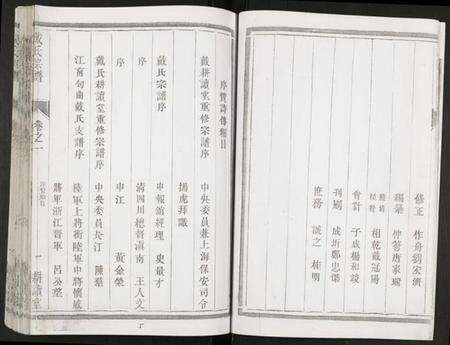 修正　作舟劉宏濟
編纂　唐家瓏
校對　相乾戴冠陽
會計　子成楊和
刊刷　成圻鄭忠傑
庶務　誠之　楠明
序贊詩傳細目
戴耕讀堂重修宗譜序　中央委員兼上海保安司令
楊虎拜譔
戴氏宗譜序　申報館經理　史量才
序　清四川總督滇南　王人文
序　申江　黃金榮
戴氏耕讀堂重修宗譜序　中央委員長汀　陳羣
江甯句甬戴氏支譜序　陸軍上將銜陸軍中將懷威
將軍浙江督軍　呂公望
戴氏宗譜　卷之一　一　耕讀堂